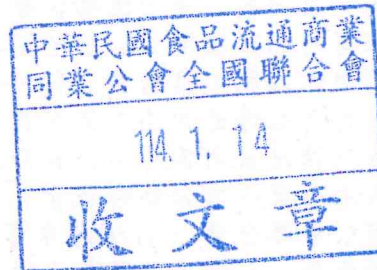 中華民國食品流通商業
同業公會全國聯合會
114. 1. 14
收文章